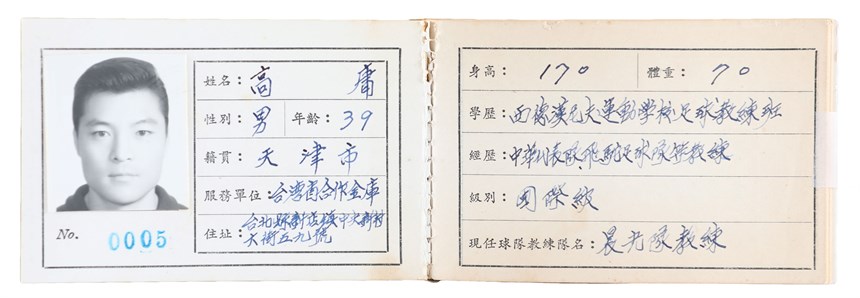 姓名：高 庸
性別：男 年齡：39
籍貫：天津市
服務單位：台灣省合作金庫
住址：台北縣新店鎮中央新村
六街五九號
No. 0005
身高：170 體重：70
學歷：西德漢尼夫運動學校足球教練班
經歷：中華代表隊飛駝足球隊等教練
級別：國際級
現任球隊教練隊名：晨光隊教練